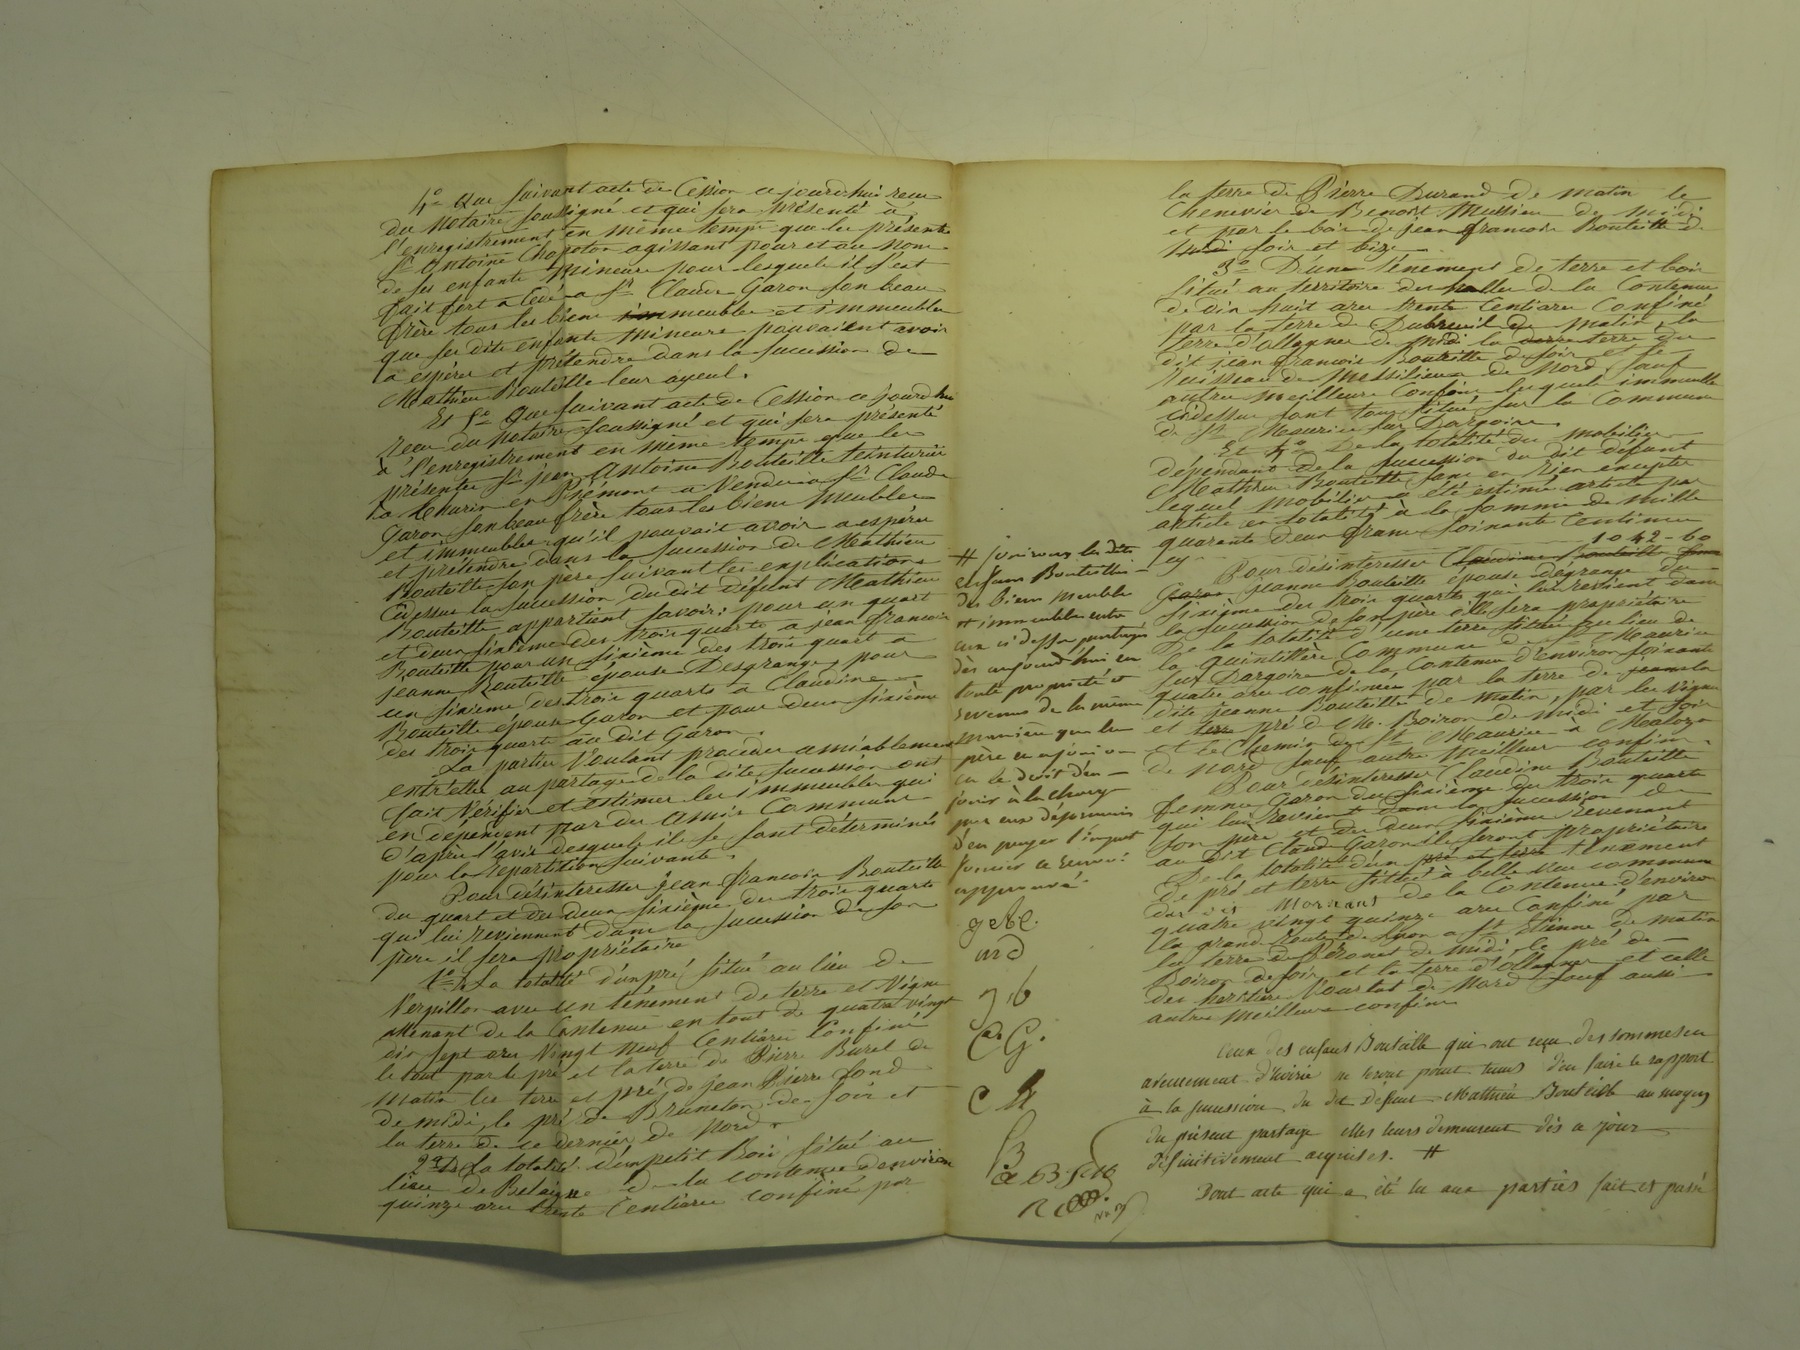 4° Que suivant acte de Cession ce jourd'hui reçu
du Notaire soussigné et qui sera présenté à
l'enregistrement en même temps que les présentes
Sr Antoine Chapoton agissant pour et au nom
de ses enfants mineurs pour lesquels il s'est
fait fort a Cédé a Sr Claude Garon son beau
frère tous les biens meubles et immeubles
que ses dits enfants mineurs pouvaient avoir
a espérer et prétendre dans la succession de
Mathieu Bouteille leur ayeul.
Et 5° Que suivant acte de Cession ce jourd'hui
reçu du Notaire soussigné et qui sera présenté
à l'enregistrement en même temps que les
présentes Sr jean Antoine Bouteille teinturier
à thurin en Piémont a Vendu a Sr Claude
Garon son beau frère tous les biens meubles
et immeubles qu'il pouvait avoir a espérer
et prétendre dans la succession de Mathieu
Bouteille son père suivant les explications
Cidessus la succession du dit défunt Mathieu
Bouteille appartient savoir: pour un quart
et deux sixièmes des trois quarts a jean francois
Bouteille pour un sixième des trois quart a
jeanne Bouteille épouse Desgranges, pour
un sixième des trois quarts a Claudine
Bouteille épouse Garon et pour deux sixième
des trois quarts au dit Garon.
Les parties Voulant procéder amiablement
entr'elles au partage de la dite succession ont
fait Vérifier et Estimer les immeubles qui
en dépendent par des amis Communs
d'après l'avis desquels ils se sont déterminés
pour la Répartition suivante.
Pour désinteresser jean francois Bouteille
du quart et des deux sixièmes des trois quarts
qui lui reviennent dans la succession de son
père il sera propriétaire
1° De La totalité d'un pré situé au lieu de
Verpillon avec un tênement de terre et Vigne
attenant de la Contenue en tout de quatre vingt
dix sept ares Vingt neuf Centiares Confiné
le tout par le pré et la terre de Pierre Burel de
matin les terre et pré de jean Pierre fond
de midi, le pré de Bruneton de soir et
la terre de ce dernier de Nord.
2° De La totalité d'un petit Bois situé au
lieu de de la contenue d'environ
quinze ares trente Centiares confiné par
# jouiront les dits
enfans Bouteille
des biens meubles
et immeubles entre
eux ci dessus partagés
dès aujourd'hui en
toute propriété et
revenus de la même
manière que leur
père en a joui ou
eu le droit d'en
jouir à la charge
par eux désormais
d'en payer l'impot
foncier ce renvoi
approuvé.
C. G.
la terre de Pierre Durand de matin le
Chenevier de Benoit Mussieu de midi
et par le bois de jean francois Bouteille de
soir et bize.
3° D'une tênement de terre et bois
situé au territoire des de la Contenue
de dix huit ares trente Centiares Confiné
par la terre de Dubreuil de matin, la
terre d'Ollagner de midi la terre du
dit jean francois Bouteille de soir et le
Ruisseau de de Nord, sauf
autres meilleurs Confins lesquels immeubles
cidessus sont tous situés sur la Commune
de St Maurice sur Dargoire.
Et 4° De la totalité du mobilier
dépendant de la succession du dit défunt
Mathieu Bouteille sans en rien excepter
lequel mobilier a été estimé article par
article en totalité à la somme de mille
quarante deux francs soixante Centimes
cy 1042-60
Pour désinteresser Claudine Bouteille femme
Garon jeanne Bouteille épouse dégrange du
sixième des trois quarts qui lui revient dans
la succession de son père elle sera propriétaire
De la totalité d'une terre située au lieu de
la Quintillère Commune de St Maurice
sur Dargoire de la Contenue d'environ soixante
quatre ares confinée par la terre de la
dite jeanne Bouteille de matin, par les Vignes
et pré de M. Boiron de midi et soir
et le Chemin de St Maurice à
de nord sauf autre meilleur confins.
Pour désinteresser Claudine Bouteille
femme Garon du sixième des trois quarts
qui lui revient dans la succession de
son père et des deux sixième revenant
au dit Claud Garon ils seront propriétaire
De la totalité d'un pré et terre tênement
de pré et terre située à belle Vue commune
du dit Mornant de la Contenue d'environ
quatre vingt quinze ares Confiné par
la grand Route de Lyon a St Etienne de matin
la terre de de midi le pré de
Boiron de soir et la terre d'Ollagner et celle
des heritiers de Nord sauf aussi
autres Meilleurs confins
Ceux des enfans Bouteille qui ont reçu des sommes en
avancement d'hoirie ne seront point tenus d'en faire le rapport
à la succession du dit Défunt Mathieu Bouteille au moyen
du présent partage elles leurs demeurent dès a jour
définitivement acquises. #
Dont acte qui a été lu aux parties fait et passé